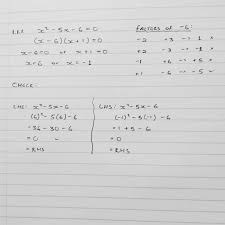 x² - 5x - 6 = 0
(x - 6)(x + 1) = 0
x - 6 = 0 or x + 1 = 0
x = 6 or x = -1
FACTORS OF -6:
-2 +3 → 1 x
+2 -3 → -1 x
-1 +6 → +5 x
+1 -6 → -5 ✓
CHECK:
LHS: x² - 5x - 6
= (6)² - 5(6) - 6
= 36 - 30 - 6
= 0
= RHS
LHS: x² - 5x - 6
= (-1)² - 5(-1) - 6
= 1 + 5 - 6
= 0
= RHS